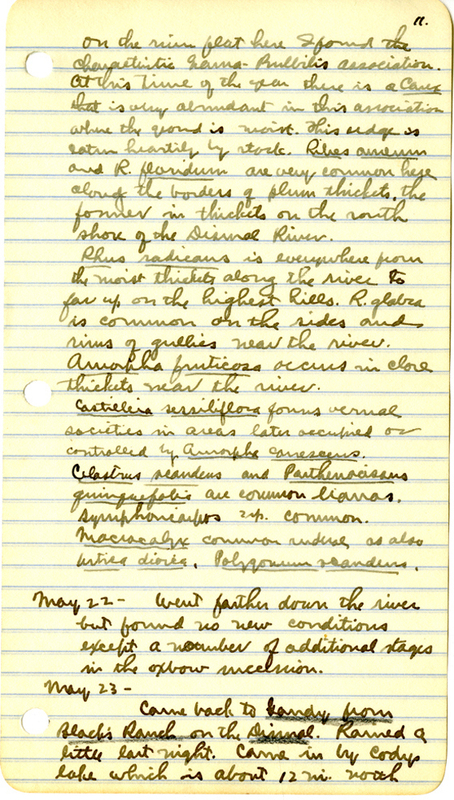 11.
On the river flat here I found the
characteristic Grama-Bulbilis association.
At this time of the year there is a Carex
that is very abundant in this association
where the ground is moist. This sedge is
eaten heartily by stock. Ribes aureum
and R. floridum are very common here
along the borders of plum thickets, the
former in thickets on the south
shore of the Dismal River.
Rhus radicans is everywhere from
the moist thickets along the river to
far up on the highest hills. R. glabra
is common on the sides and
rims of gullies near the river.
Amorpha fruticosa occurs in close
thickets near the river.
Castilleia sessiliflora forms vernal
societies in areas later occupied or
controlled by Amorpha canescens.
Celastrus scandens and Parthenocissus
quinquefolia are common lianas.
Symphoricarpos sp. common.
Macrocalyx common under, as also
Urtica dioica. Polygonum scandens.
May 22 - Went farther down the river
but found no new conditions
except a number of additional stages
in the oxbow succession.
May 23 -
Came back to Gandy from
Black's Ranch on the Dismal. Rained a
little last night. Came in by Codys
lake which is about 12 m. north